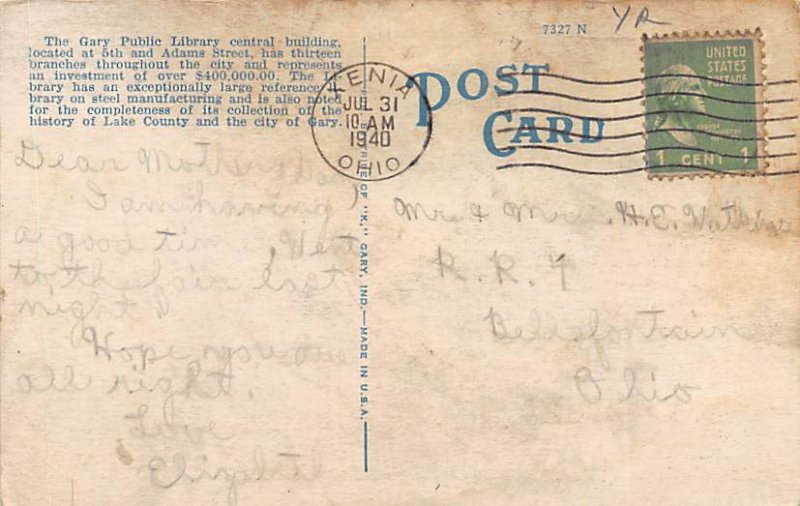 7327 N
YR
The Gary Public Library central building,
located at 5th and Adams Street, has thirteen
branches throughout the city and represents
an investment of over $400,000.00. The li-
brary has an exceptionally large reference li-
brary on steel manufacturing and is also noted
for the completeness of its collection of the
history of Lake County and the city of Gary.
POST
CARD
XENIA
JUL 31
10 AM
1940
OHIO
UNITED
STATES
POSTAGE
1 CENT 1
OF "K," GARY, IND.—MADE IN U.S.A.
Dear Mother
I am having
a good time. Went
to the fair last
night.
Hope you are
all right.
Love
Mr. & Mrs. H. E. Watkins
R. R. 4
Bellefontaine
Ohio